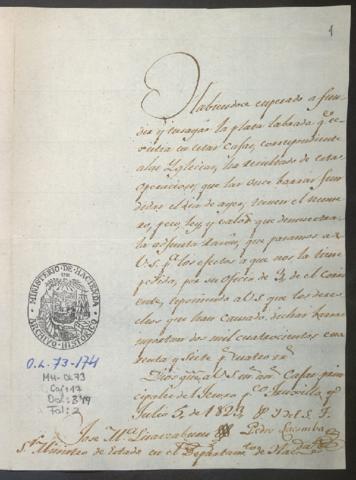 1
Habiendose empezado a fun-
dir y ensayar la plata labrada q.e e-
xistia en estas Casas, correspondiente
a las Yglesias, ha resultado de esta
operacion, que las once barras fun-
didas el dia de ayer, tienen el nume-
ro, peso, ley, y valor que demuestra
la adjunta razon, que pasamos a
V.S. p.a los efectos a que nos la tiene
pedida, por su oficio de 3 del corri-
ente, exponiendo a V.S. que los dere-
chos que han causado dichas barras
importan dos mil cuatrocientos cua-
renta y siete p.s cuatro r.s
Dios gue. a V.S. m.s a.s Casas prin-
cipales de
Julio 5. de 1823
Jose M.a Pedro
S.or Ministro de Estado en el Departam.to de Hac.da
MINISTERIO·DE·HACIENDA
ARCHIVO·HISTORICO
O.L.-73-174
MH-OL73
Caj:17
Doc:349
Fol:2